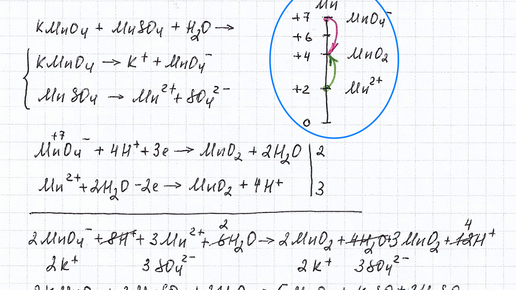 KMnO₄ + MnSO₄ + H₂O →
KMnO₄ → K⁺ + MnO₄⁻
MnSO₄ → Mn²⁺ + SO₄²⁻
Mn
+7 MnO₄⁻
+6
+4 MnO₂
+2 Mn²⁺
0
+7
MnO₄⁻ + 4H⁺ + 3e → MnO₂ + 2H₂O | 2
Mn²⁺ + 2H₂O - 2e → MnO₂ + 4H⁺ | 3
2 4
2MnO₄⁻ + 8H⁺ + 3Mn²⁺ + 6H₂O → 2MnO₂ + 4H₂O + 3MnO₂ + 12H⁺
2K⁺ 3SO₄²⁻ 2K⁺ 3SO₄²⁻